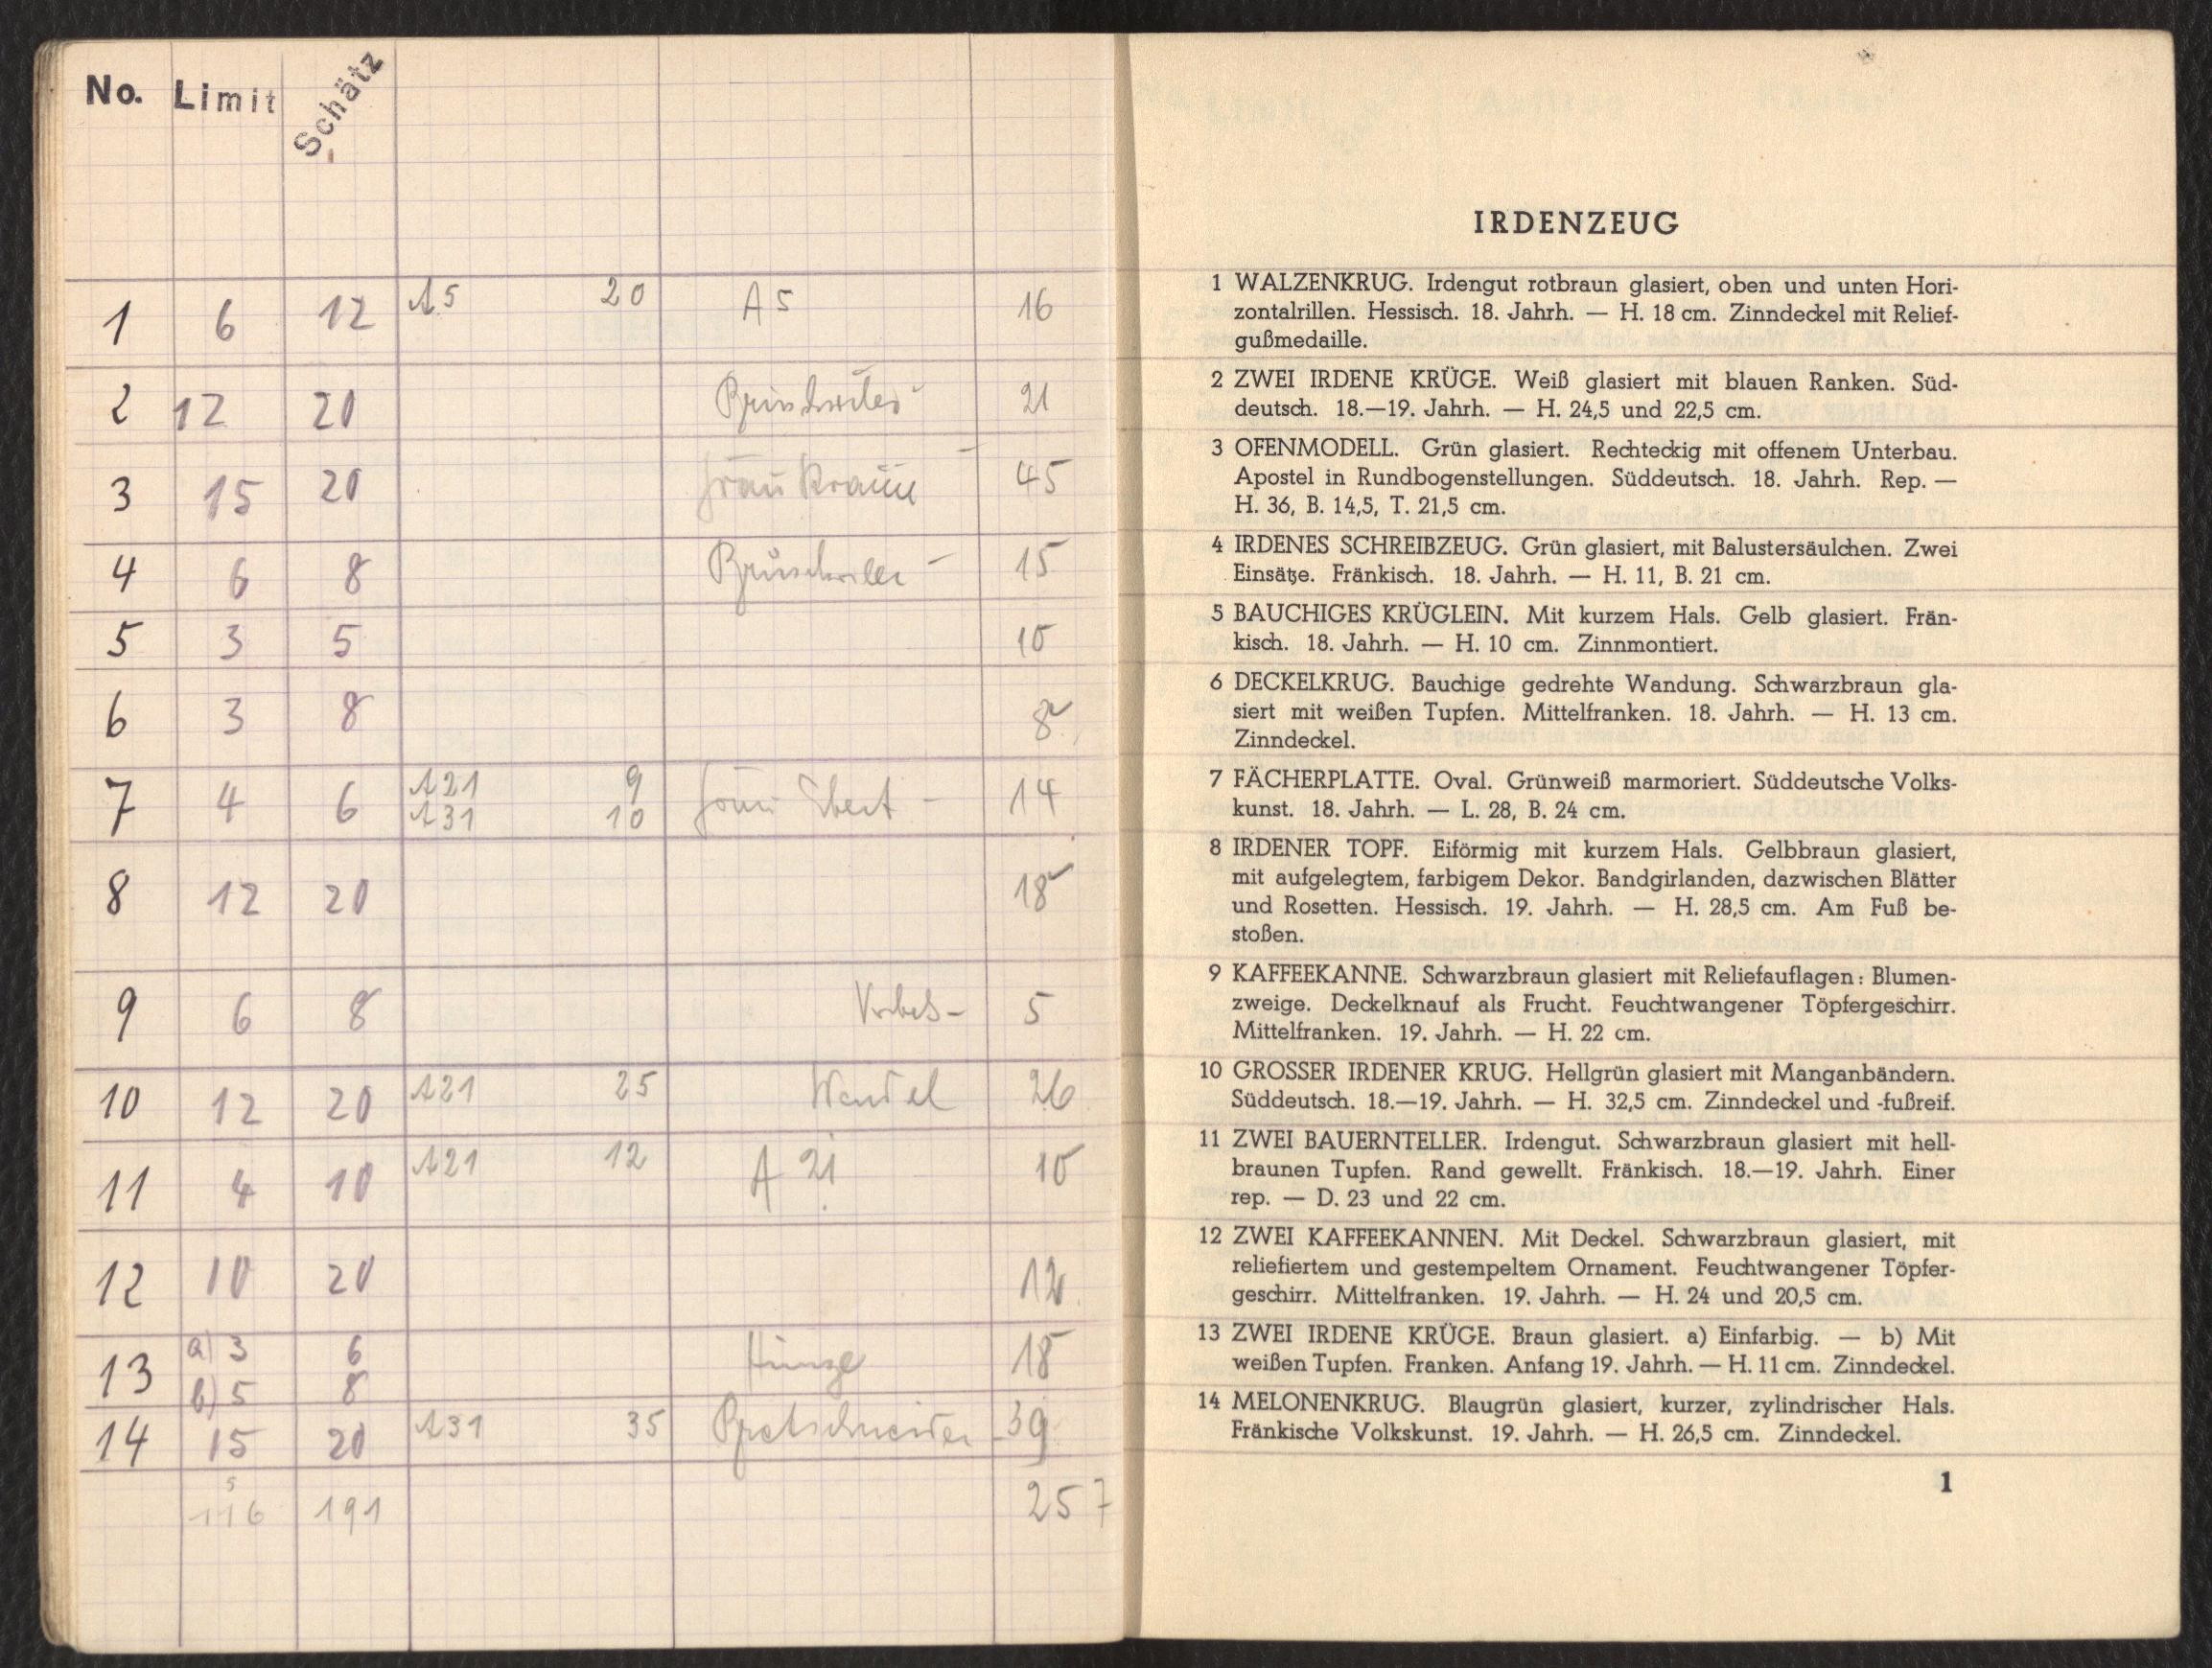 No. Limit Schätz
1 6 12 A5 20 A5 16
2 12 20 21
3 15 20 Frau 45
4 6 8 15
5 3 5 10
6 3 8 8
7 4 6 A21 9 A31 10 Ebert - 14
8 12 20 18
9 6 8 5
10 12 20 A21 25 Wandel 26
11 4 10 A21 12 A 21 10
12 10 20 12
13 a) 3 6 18
b) 5 8
14 15 20 A31 35 Bretschneider 39
116 191 257
IRDENZEUG
1 WALZENKRUG. Irdengut rotbraun glasiert, oben und unten Hori-
zontalrillen. Hessisch. 18. Jahrh. — H. 18 cm. Zinndeckel mit Relief-
gußmedaille.
2 ZWEI IRDENE KRÜGE. Weiß glasiert mit blauen Ranken. Süd-
deutsch. 18.—19. Jahrh. — H. 24,5 und 22,5 cm.
3 OFENMODELL. Grün glasiert. Rechteckig mit offenem Unterbau.
Apostel in Rundbogenstellungen. Süddeutsch. 18. Jahrh. Rep. —
H. 36, B. 14,5, T. 21,5 cm.
4 IRDENES SCHREIBZEUG. Grün glasiert, mit Balustersäulchen. Zwei
Einsätze. Fränkisch. 18. Jahrh. — H. 11, B. 21 cm.
5 BAUCHIGES KRÜGLEIN. Mit kurzem Hals. Gelb glasiert. Frän-
kisch. 18. Jahrh. — H. 10 cm. Zinnmontiert.
6 DECKELKRUG. Bauchige gedrehte Wandung. Schwarzbraun gla-
siert mit weißen Tupfen. Mittelfranken. 18. Jahrh. — H. 13 cm.
Zinndeckel.
7 FÄCHERPLATTE. Oval. Grünweiß marmoriert. Süddeutsche Volks-
kunst. 18. Jahrh. — L. 28, B. 24 cm.
8 IRDENER TOPF. Eiförmig mit kurzem Hals. Gelbbraun glasiert,
mit aufgelegtem, farbigem Dekor. Bandgirlanden, dazwischen Blätter
und Rosetten. Hessisch. 19. Jahrh. — H. 28,5 cm. Am Fuß be-
stoßen.
9 KAFFEEKANNE. Schwarzbraun glasiert mit Reliefauflagen: Blumen-
zweige. Deckelknauf als Frucht. Feuchtwangener Töpfergeschirr.
Mittelfranken. 19. Jahrh. — H. 22 cm.
10 GROSSER IRDENER KRUG. Hellgrün glasiert mit Manganbändern.
Süddeutsch. 18.—19. Jahrh. — H. 32,5 cm. Zinndeckel und -fußreif.
11 ZWEI BAUERNTELLER. Irdengut. Schwarzbraun glasiert mit hell-
braunen Tupfen. Rand gewellt. Fränkisch. 18.—19. Jahrh. Einer
rep. — D. 23 und 22 cm.
12 ZWEI KAFFEEKANNEN. Mit Deckel. Schwarzbraun glasiert, mit
reliefiertem und gestempeltem Ornament. Feuchtwangener Töpfer-
geschirr. Mittelfranken. 19. Jahrh. — H. 24 und 20,5 cm.
13 ZWEI IRDENE KRÜGE. Braun glasiert. a) Einfarbig. — b) Mit
weißen Tupfen. Franken. Anfang 19. Jahrh. — H. 11 cm. Zinndeckel.
14 MELONENKRUG. Blaugrün glasiert, kurzer, zylindrischer Hals.
Fränkische Volkskunst. 19. Jahrh. — H. 26,5 cm. Zinndeckel.
1